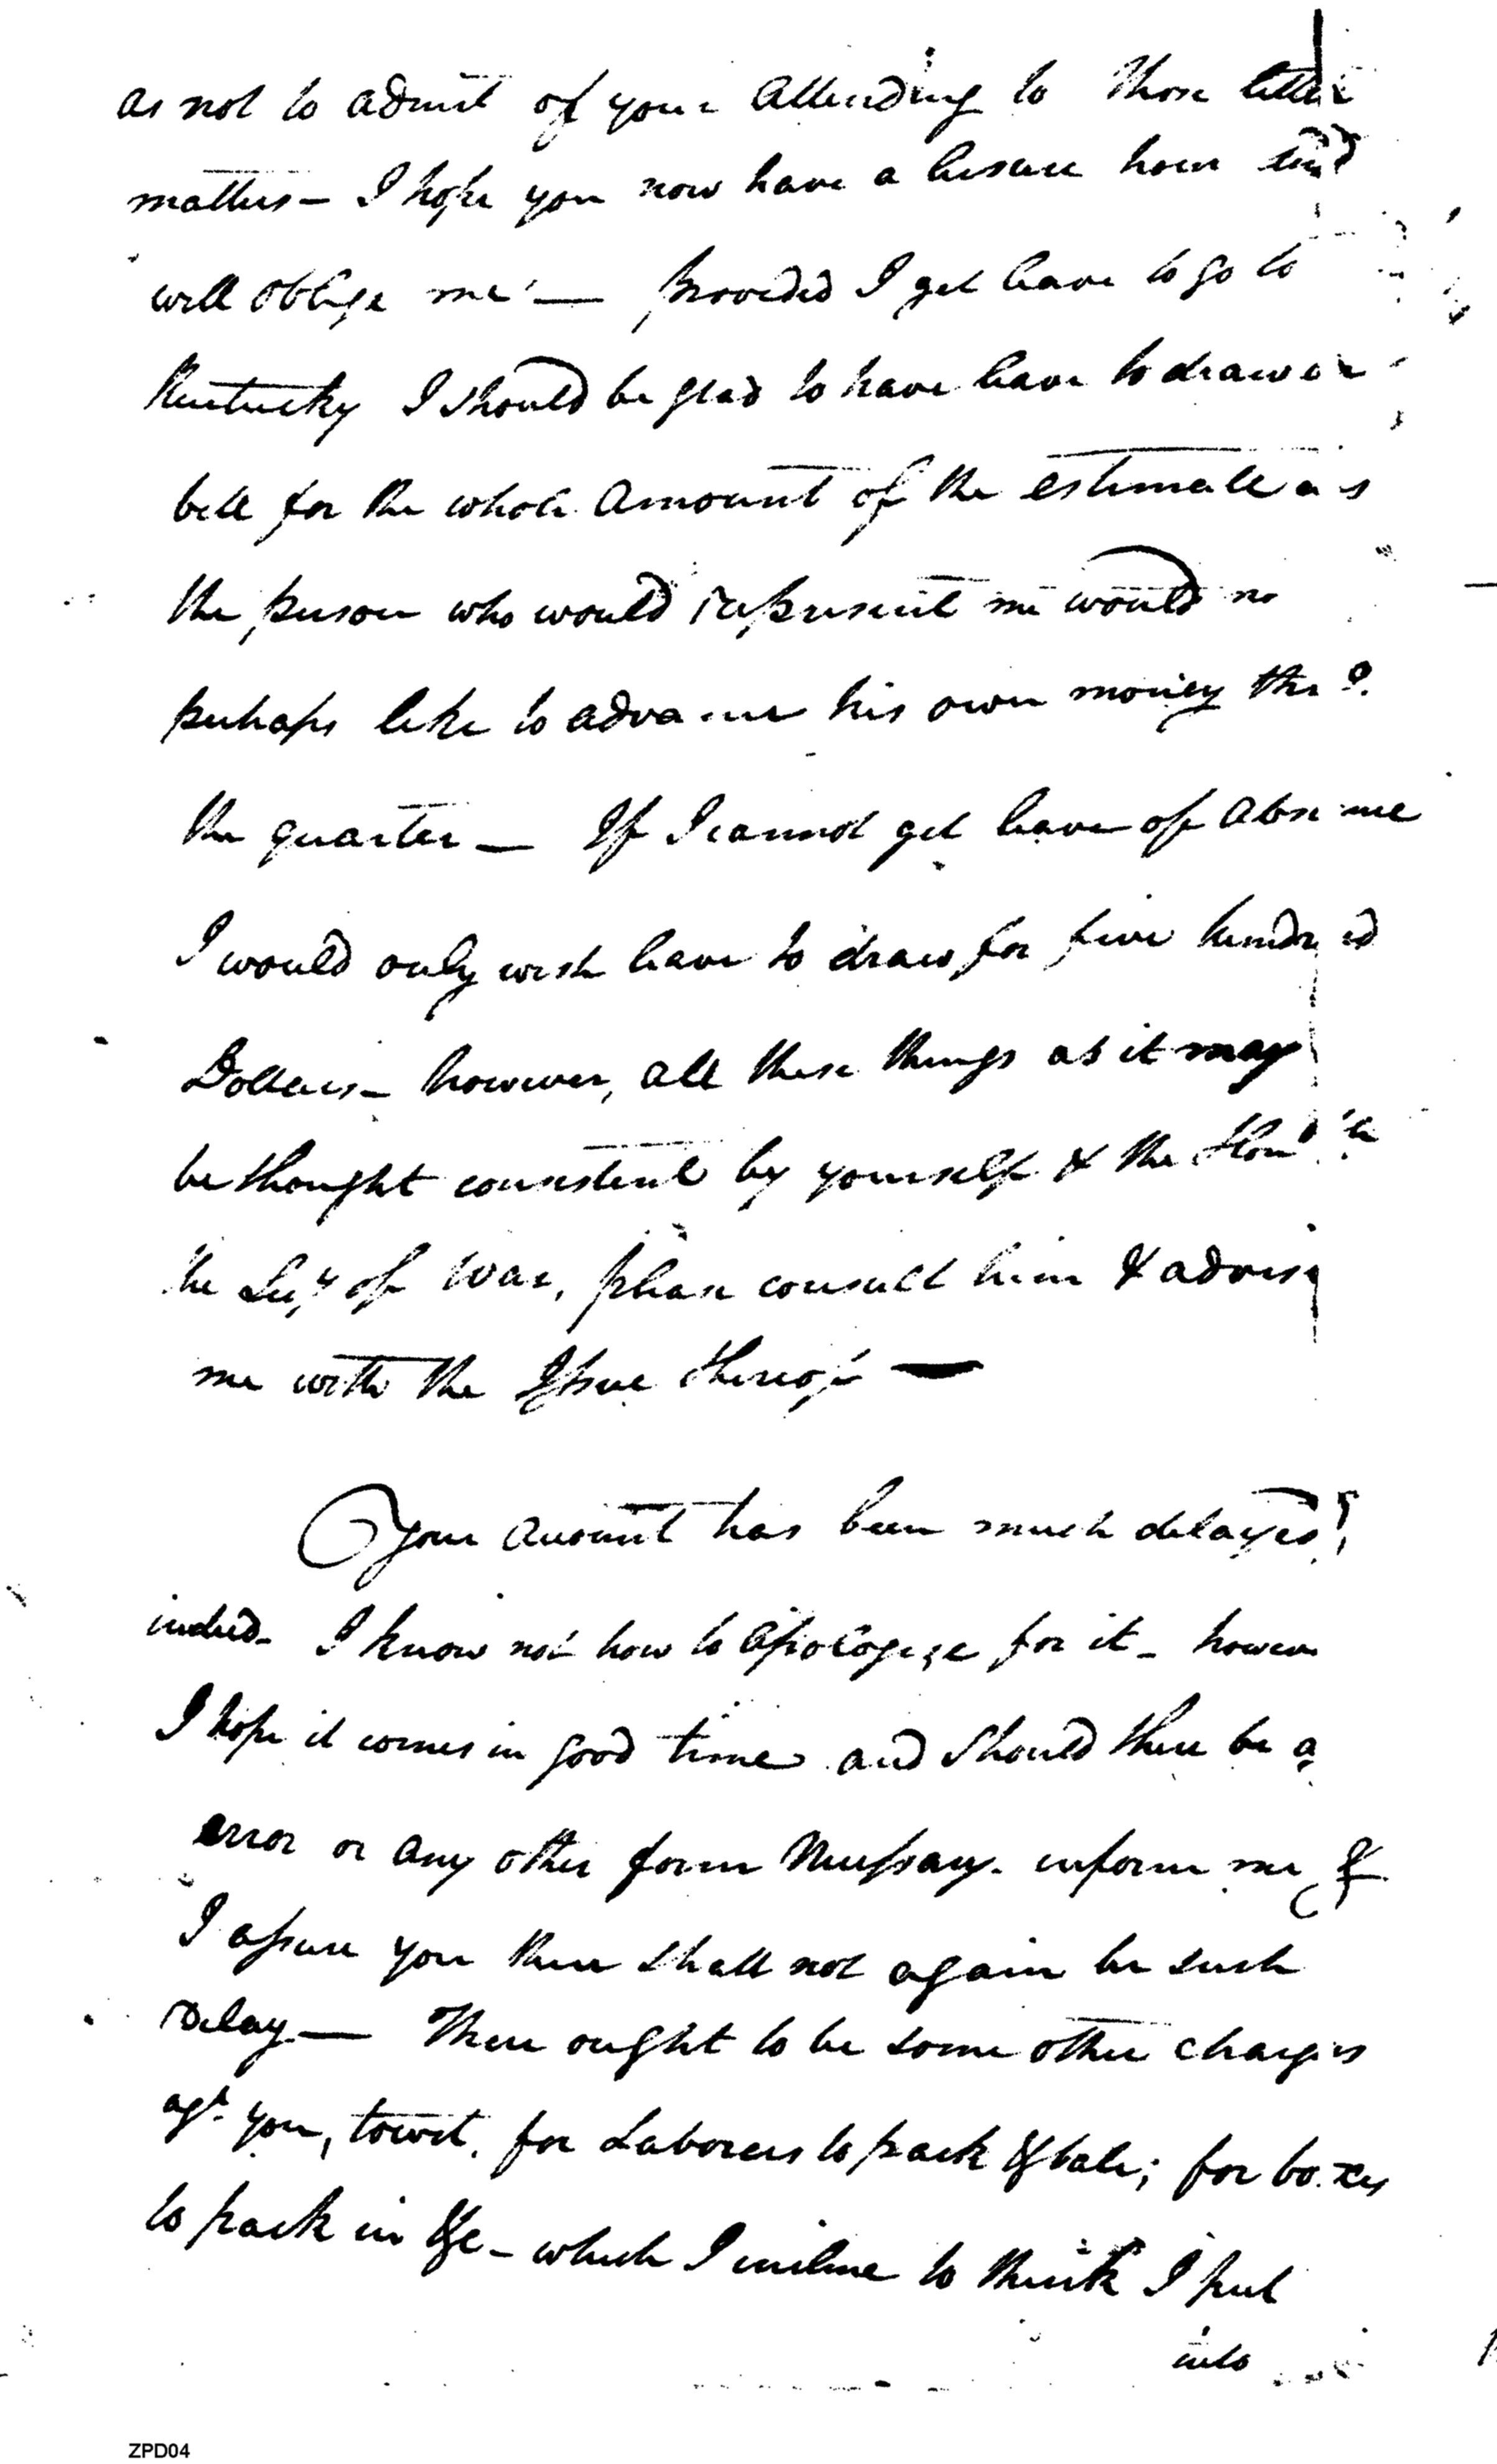 as not to admit of your attending to those little
matters — I hope you now have a leisure hour and
will oblige me — provided I get leave to go to
Kentucky I should be glad to have leave to draw a
bill for the whole amount of the estimate as
the person who would represent me would no
perhaps like to advance his own money thro.
the quarter — If I cannot get leave of absence
I would only wish leave to draw for five hundred
Dollars — however, all these things as it may
be thought consistent by yourself & the Honble
the Secy of War, please consult him & advise
me with the Issue thereof —
Your account has been much delayed,
indeed — I know not how to apologize for it — howev
I hope it comes in good time and should there be a
error or any other form Necessary — inform me &
I assure you there shall not again be such
Delay — There ought to be some other charges
agt. you, towit, for Laborers to pack & bale; for boxes
to pack in &c — which I incline to think I put
into
ZPD04